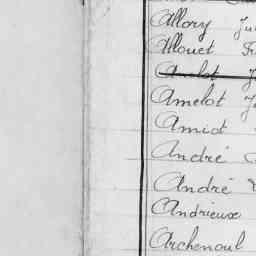 Allory Ju
Allouet Fr
Amelot J
Amelot J
Amiot
André
André
Andrieux
Archenoul